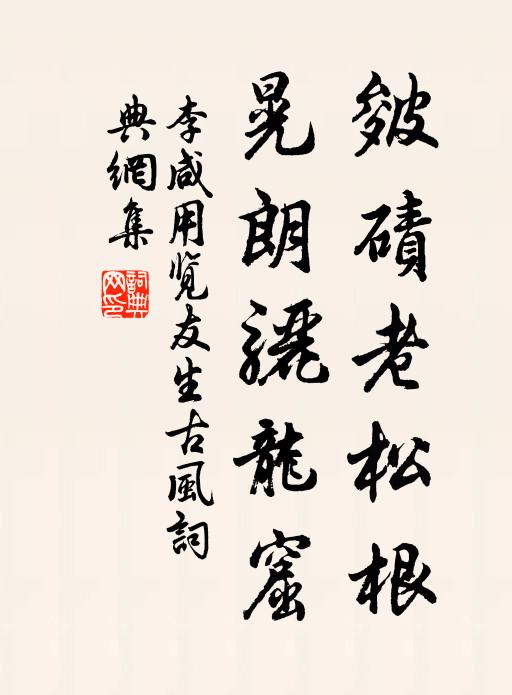 皴磧老松根
晃朗驪龍窟
李咸用覽友生古風詞
典網集
詞典網印